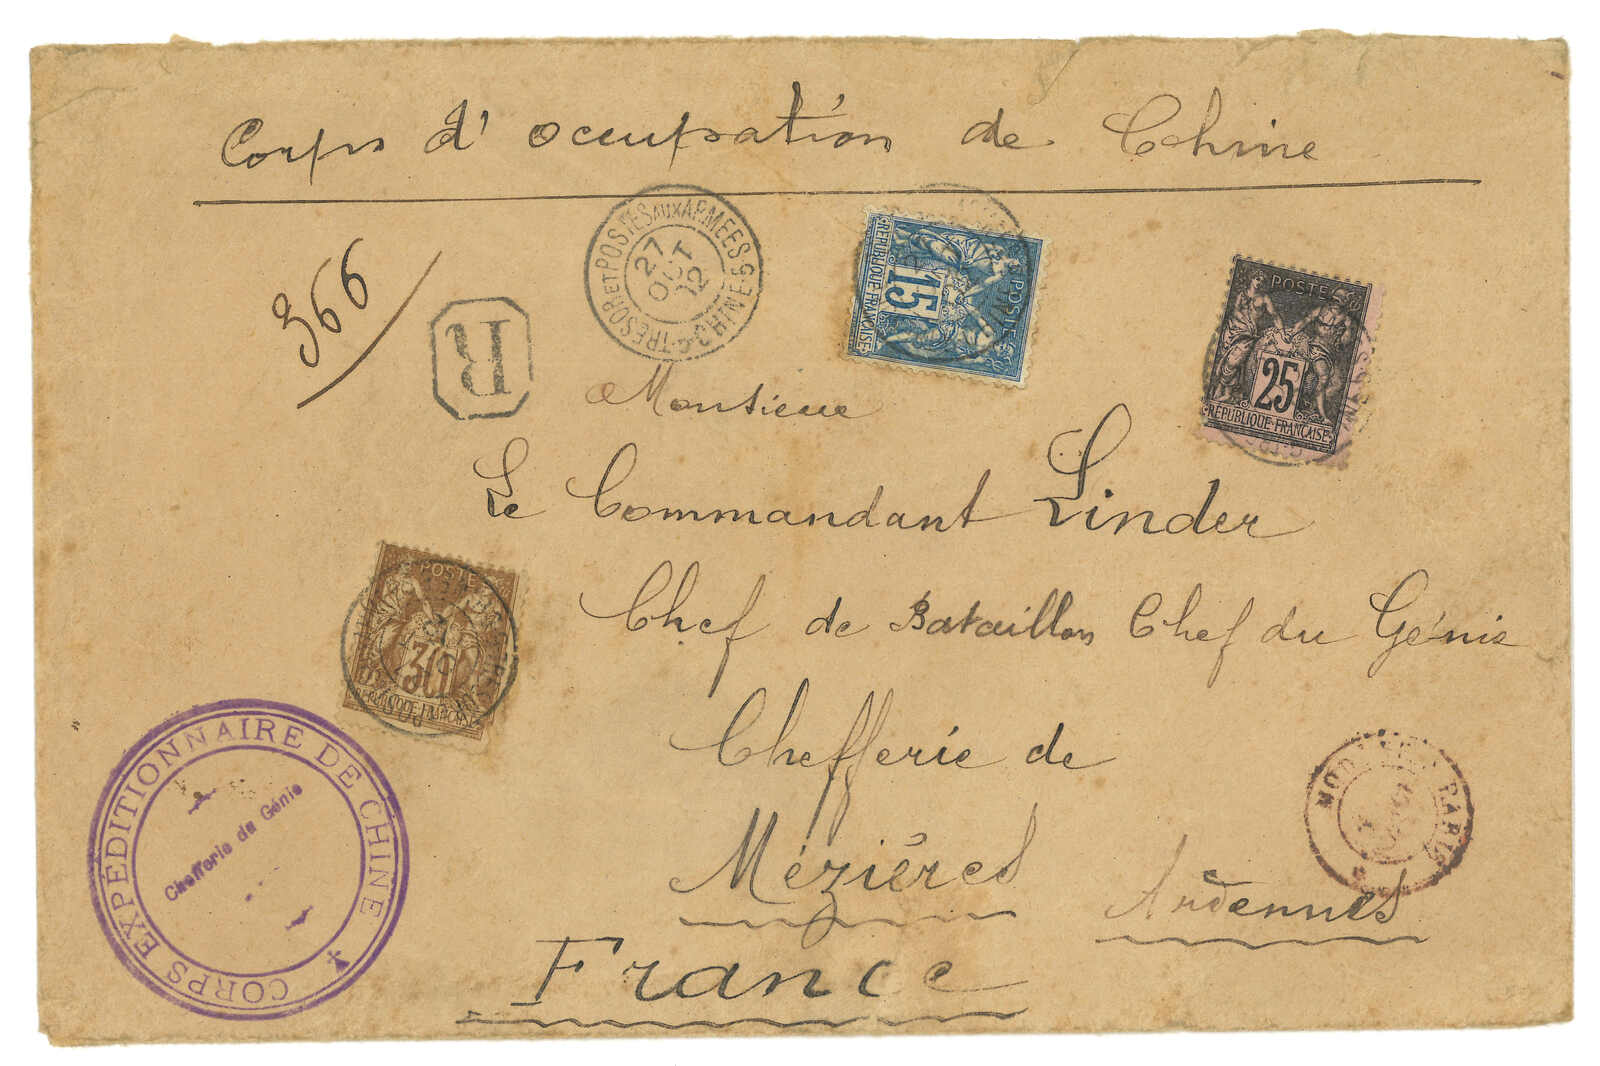 Corps d'occupation de Chine
366
R
TRÉSOR ET POSTES AUX ARMEES CHINE
27
OCT
POSTES
15
RÉPUBLIQUE FRANÇAISE
POSTES
25
RÉPUBLIQUE FRANÇAISE
Monsieur
Le Commandant Linder
POSTES
30
RÉPUBLIQUE FRANÇAISE
Chef de Bataillon Chef du Génie
Chefferie de
Mézières
Ardennes
France
CORPS EXPÉDITIONNAIRE DE CHINE
Chefferie du Génie
PARIS